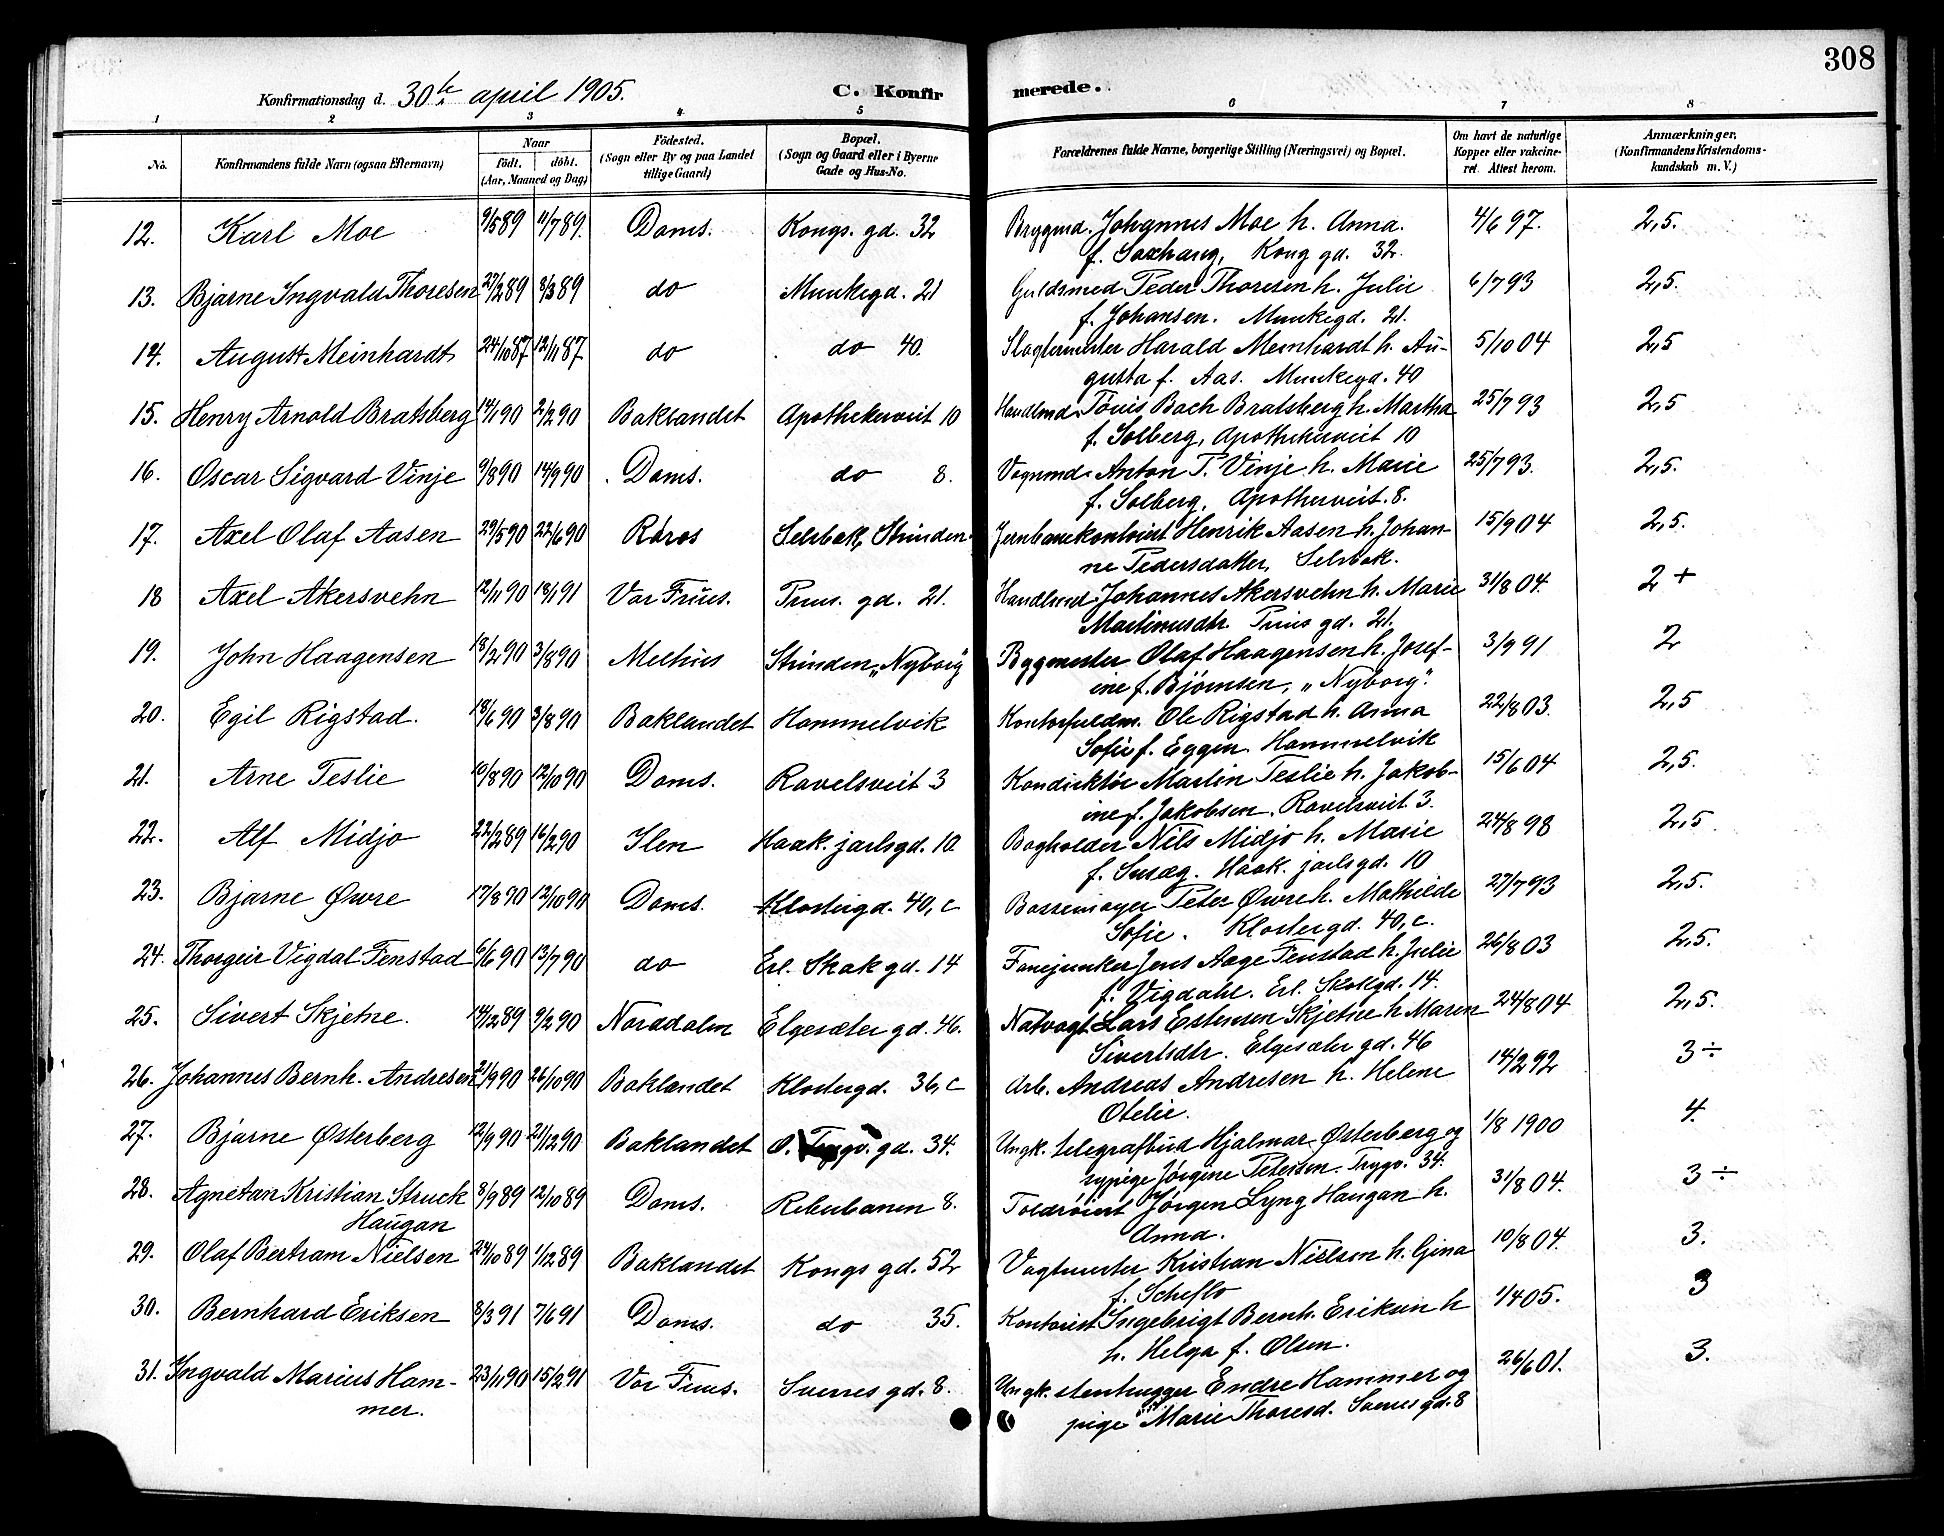 308
Konfirmationsdag d. 30te april 1905.
C. Konfir merede.
1 2 3 4 5 6 7 8
No. Konfirmandens fulde Navn (ogsaa Efternavn) Naar födt. döbt. (Aar, Maaned og Dag) Födested. (Sogn eller By og paa Landet tillige Gaard) Bopæl. (Sogn og Gaard eller i Byerne Gade og Hus-No. Forældrenes fulde Navne, borgerlige Stilling (Næringsvei) og Bopæl. Om havt de naturlige Kopper eller vakcineret. Attest herom. Anmærkninger. (Konfirmandens Kristendomskundskab m. V.)
12. Karl Moe 9/5 89 11/7 89. Doms. Kongs. gd. 32 Brygmd. Johannes Moe h. Anna. 4/6 97. 2,5.
f. Saxhaug, Kong gd. 32.
13. Bjarne Ingvald Thoresen 27/2 89 8/3 89 do Munkegd. 21 Guldsmed Peder Thoresen h. Julie 6/7 93 2,5.
f. Johansen. Munkegd. 21.
14. August Meinhardt 24/10 87 12/11 87 do do 40. Slagtermester Harald Meinhardt h. Au- 5/10 04 2,5
gusta f. Aas. Munkegd. 40
15. Henry Arnold Bratsberg 14/1 90 2/2 90 Baklandet Apothekerveit 10 Handlmd. Tönis Bach Bratsberg h. Martha 25/7 93 2,5
f. Solberg, Apothekerveit 10
16. Oscar Sigvard Vinje 9/8 90 14/9 90 Doms. do 8. Vognmd. Anton T. Vinje h. Marie 25/7 93. 2,5.
f. Solberg, Apotherveit. 8.
17. Axel Olaf Aasen 29/5 90 22/6 90 Röros Selsbak, Strinden. Jernbanekontorist Henrik Aasen h. Johan- 15/9 04 2,5.
ne Pedersdatter, Selsbak.
18 Axel Akersvehn 12/11 90 18/1 91 Vor Frues. Prins. gd. 21. Handlmd. Johannes Akersvehn h. Marie 31/8 04. 2 +
Martinusdtr. Prins gd. 21.
19. John Haagensen 18/2 90 3/8 90 Melhus Strinden, "Nyborg" Bygmester Olaf Haagensen h. Josef- 3/9 91 2
ine f. Bjørnsen, "Nyborg".
20. Egil Rigstad. 18/6 90 3/8 90 Baklandet Hommelvik Kontorfuldm. Ole Rigstad h. Anna 22/8 03. 2,5
Sofie f. Eggen. Hommelvik
21. Arne Teslie 10/8 90 12/10 90 Doms. Ravelsveit 3 Konduktör Martin Teslie h. Jakob- 15/6 04 2,5.
ine f. Jakobsen. Ravelsveit 3.
22. Alf Midjo 22/2 89 16/2 90 Ilen Haak. jarlsgd. 10 Bogholder Nils Midjo h. Marie 24/8 98 2,5
f. Haak. jarlsgd. 10
23. Bjarne Øwre 17/8 90 12/10 90 Doms. Klostergd. 40, c Peter Øwre h. Mathilde 27/7 93 2,5.
Sofie. Klostergd. 40, c.
24. Thorgeir Vigdal Fenstad 6/6 90 13/7 90 do Erl. Skak gd. 14 Fanejunker Jens Aage Fenstad h. Julie 26/8 03 2,5.
f. Vigdahl. Erl. Skakgd. 14.
25. Sivert Skjetne. 14/12 89 9/2 90 Norddalen Elgesæter gd. 46. Natvagt Lars Estensen Skjetne h Maren 24/8 04 2,5.
Sivertsdtr. Elgesæter gd. 46
26. Johannes Bernh. Andresen 21/9 90 26/10 90 Baklandet Klostergd. 36, c Arb. Andreas Andresen h. Helene 14/2 92 3 ÷
Otelie.
27. Bjarne Østerberg 12/9 90 21/12 90 Baklandet O. Trygv. gd. 34. Ungk. telegrafbud Hjalmar Østerberg og 1/8 1900 4.
sypige Jørgine Petersen. Trygv. 34.
28. Agnetan Kristian Struck 8/9 89 12/10 89 Doms. Reberbanen 8. Toldrörert Jørgen Lyng Haugan h. 31/8 04. 3 ÷
Haugan Anna.
29. Olaf Bertram Nielsen 24/10 89 1/12 89 Baklandet Kongs gd. 52 Vagtmester Kristian Nielsen h. Gina 10/8 04. 3.
f. Scheflo
30. Bernhard Eriksen 8/3 91 7/6 91 Doms. do 35. Kontorist Ingebrigt Bernh. Eriksen h 1/4 05. 3
h. Helga f. Olsen.
31. Ingvald Marius Ham- 23/11 90 15/2 91 Vor Frues. Sverres gd. 8. Ungk. stenhugger Endre Hammer og 26/6 01. 3.
mer. pige Marie Thoresd. Sverres gd. 8